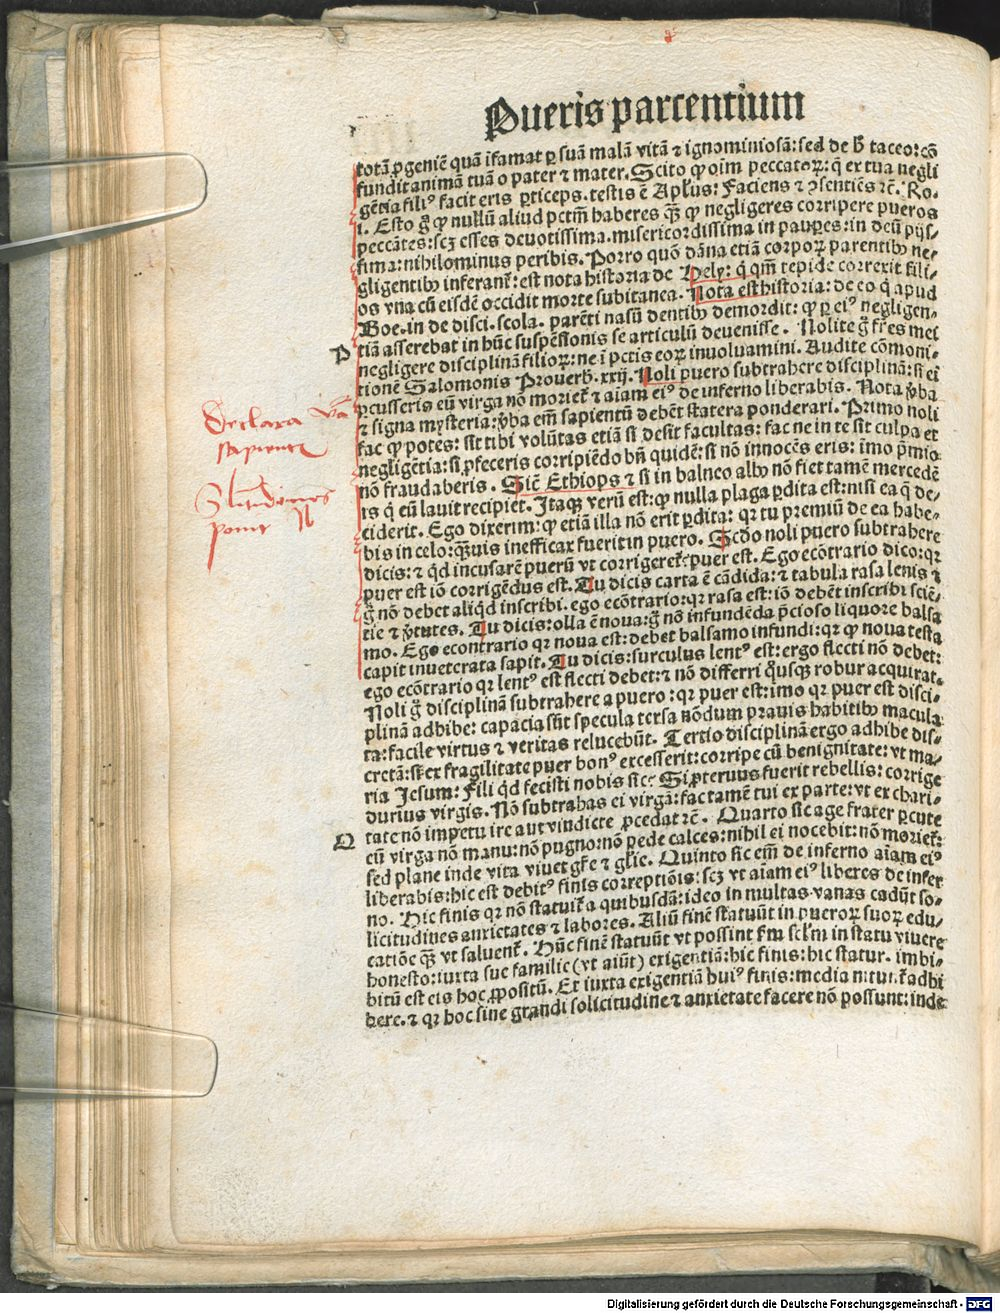 Pueris parcentium
totā ꝓgeniē quā ifamat ꝑ suā malā vitā ⁊ ignominiosā: sed de hͦ taceo: cō
fundit animā tuā o pater ⁊ mater. Scito ꝙ oīm peccatoꝝ: q̄ ex tua negli
gētia filiꝰ facit eris ꝑticeps. testis ē Apl̄us: Faciens ⁊ ꝯsentiēs ⁊c̄. Ro-
i. Esto g̊ ꝙ nullū aliud pctm̄ haberes qȝ̄ ꝙ negligeres corripere pueros
peccātes: scȝ esses deuotissima. misericordissima in pauꝑes: in deū pijs-
sima: nihilominus peribis. Porro quō dāna etiā corpoꝝ parentibꝰ ne-
gligentibꝰ inferant᷑: est nota historia de Hely: q̇ qm̄ tepide correxit fili-
os vna cū eisdē occidit morte subitanea. Nota est historia: de eo q̇ apud
Boe. in de disci. scola. parēti nasū dentibꝰ demordit: ꝙ ꝑ eiꝰ negligen-
tiā asserebat in hūc suspēsionis se articulū deuenisse. Nolite g̊ fr̄es mei
P
negligere disciplinā filioꝝ: ne ī pctīs eoꝝ inuoluamini. Audite cōmoni-
tionē Salomonis Prouerb̄. xxij. Noli puero subtrahere disciplinā: si ei
ꝑcusseris eū virga nō moriet᷑ ⁊ aīam eiꝰ de inferno liberabis. Nota v̄ba
Declara v̄ba
⁊ signa mysteria: v̄ba em̄ sapientū debēt statera ponderari. Primo noli
sapientē
fac ꝙ potes: sit tibi volūtas etiā si desit facultas: fac ne in te sit culpa et
negligētia: si ꝓfeceris corripiēdo bn̄ quidē: si nō innocēs eris: īmo p̄mio
nō fraudaberis. Sicē Ethiops ⁊ si in balneo albꝰ nō fiet tamē mercedē
Silitudines
is q̇ eū lauit recipiet. Itaqȝ verū est: ꝙ nulla plaga ꝑdita est: nisi ea q̄ de-
ponit
ciderit. Ego dixerim: ꝙ etiā illa nō erit ꝑdita: qꝛ tu premiū de ea habe-
bis in celo: qȝuis inefficax fuerit in puero. Scd̄o noli puero subtrahere
dicis: ⁊ qd̄ incusarē puerū vt corrigeret᷑: puer est. Ego ecōtrario dico: qꝛ
puer est iō corrigēdus est. Tu dicis carta ē cādida: ⁊ tabula rasa lenis ⁊
g̊ nō debet aliqd̄ inscribi. ego ecōtrario: qꝛ rasa est: iō debēt inscribi sciē-
tie ⁊ v̄tutes. Tu dicis: olla ē noua: g̊ nō infundēda p̄cioso liquore balsa
mo. Ego econtrario qꝛ noua est: debet balsamo infundi: qꝛ ꝙ noua testa
capit inueterata sapit. Tu dicis: surculus lentꝰ est: ergo flecti nō debet:
ego ecōtrario qꝛ lentꝰ est flecti debet: ⁊ nō differri q̊usqȝ robur acquirat.
Noli g̊ disciplinā subtrahere a puero: qꝛ puer est: imo qꝛ puer est disci-
plinā adhibe: capacia sūt specula tersa nōdum prauis habitibꝰ macula
ta: facile virtus ⁊ veritas relucebūt. Tertio disciplinā ergo adhibe dis-
cretā: si ex fragilitate puer bonꝰ excesserit: corripe cū benignitate: vt ma-
ria Jesum: Fili qd̄ fecisti nobis sic? Si ꝓteruus fuerit rebellis: corrige
durius virgis. Nō subtrahas ei virgā: fac tamē tui ex parte: vt ex chari-
tate nō impetu ire aut vindicte ꝓcedat ⁊c̄. Quarto sic age frater ꝑcute
Q
eū virga nō manu: nō pugno: nō pede calces: nihil ei nocebit: nō moriet᷑:
sed plane inde vita viuet gr̄e ⁊ gl̄ie. Quinto sic em̄ de inferno aīam eiꝰ
liberabis: hic est debitꝰ finis correptiōis: scȝ vt aīam eiꝰ liberes de infer
no. Hic finis qꝛ nō statuit᷑ a quibusdā: ideo in multas vanas cadūt so-
licitudines anxietates ⁊ labores. Aliū finē statuūt in pueroꝝ suoꝝ edu-
catiōe qȝ̄ vt saluent᷑. Hūc finē statuūt vt possint fm̄ scl̄m in statu viuere
honesto: iuxta sue familie (vt aiūt) exigentiā: hic finis: hic statur. imbi-
bitū est eis hoc ꝓpositū. Et iuxta exigentiā huiꝰ finis: media nitunt᷑ adhi
bere. ⁊ qꝛ hoc sine grandi solicitudine ⁊ anxietate facere nō possunt: inde
Digitalisierung gefördert durch die Deutsche Forschungsgemeinschaft - DFG